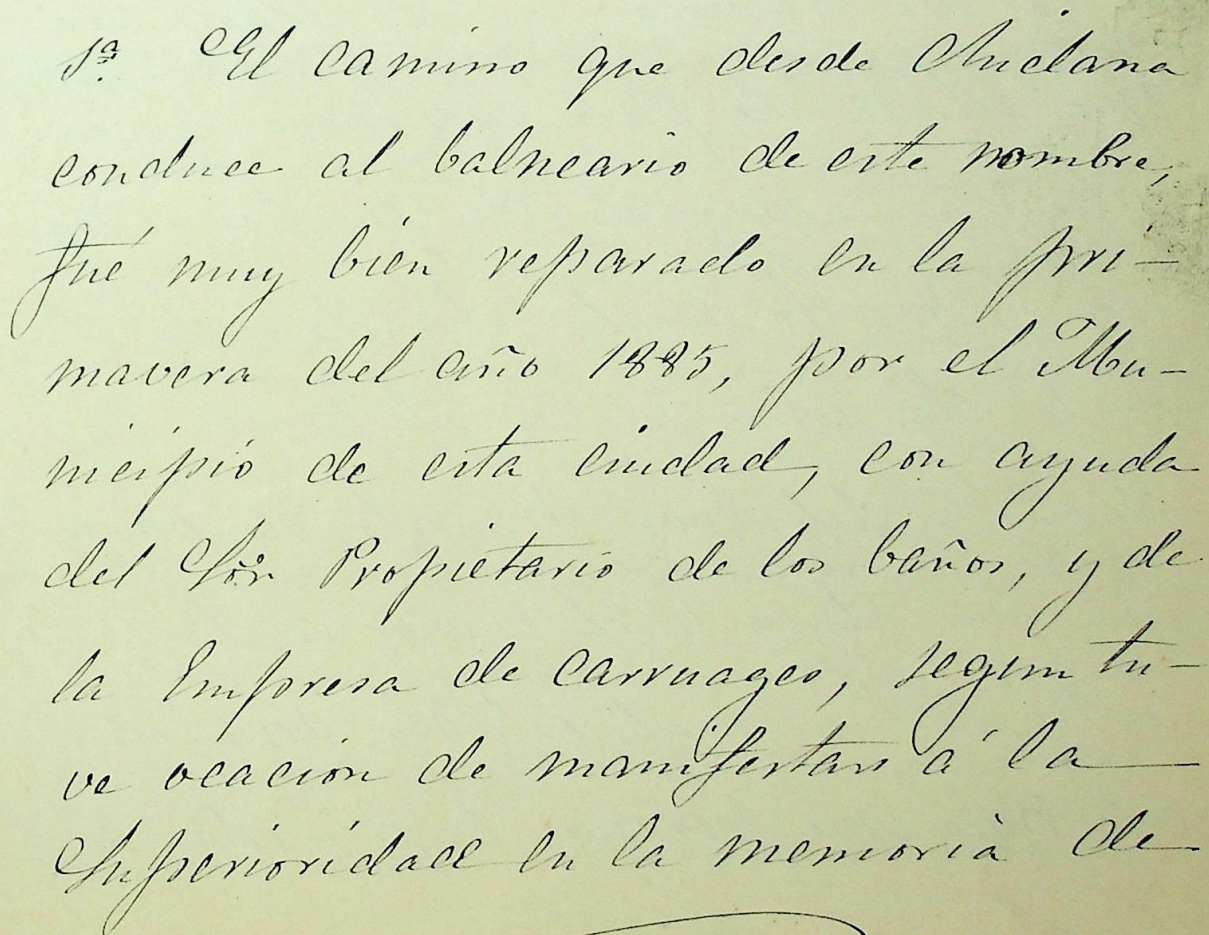 1ª. El camino que desde Chiclana
conduce al balneario de este nombre,
fué muy bien reparado en la pri-
mavera del año 1885, por el Mu-
nicipio de esta ciudad, con ayuda
del Sor. Propietario de los baños, y de
la Empresa de carruages, segun tu-
ve ocacion de manifestar á la
Superioridad en la memoria de